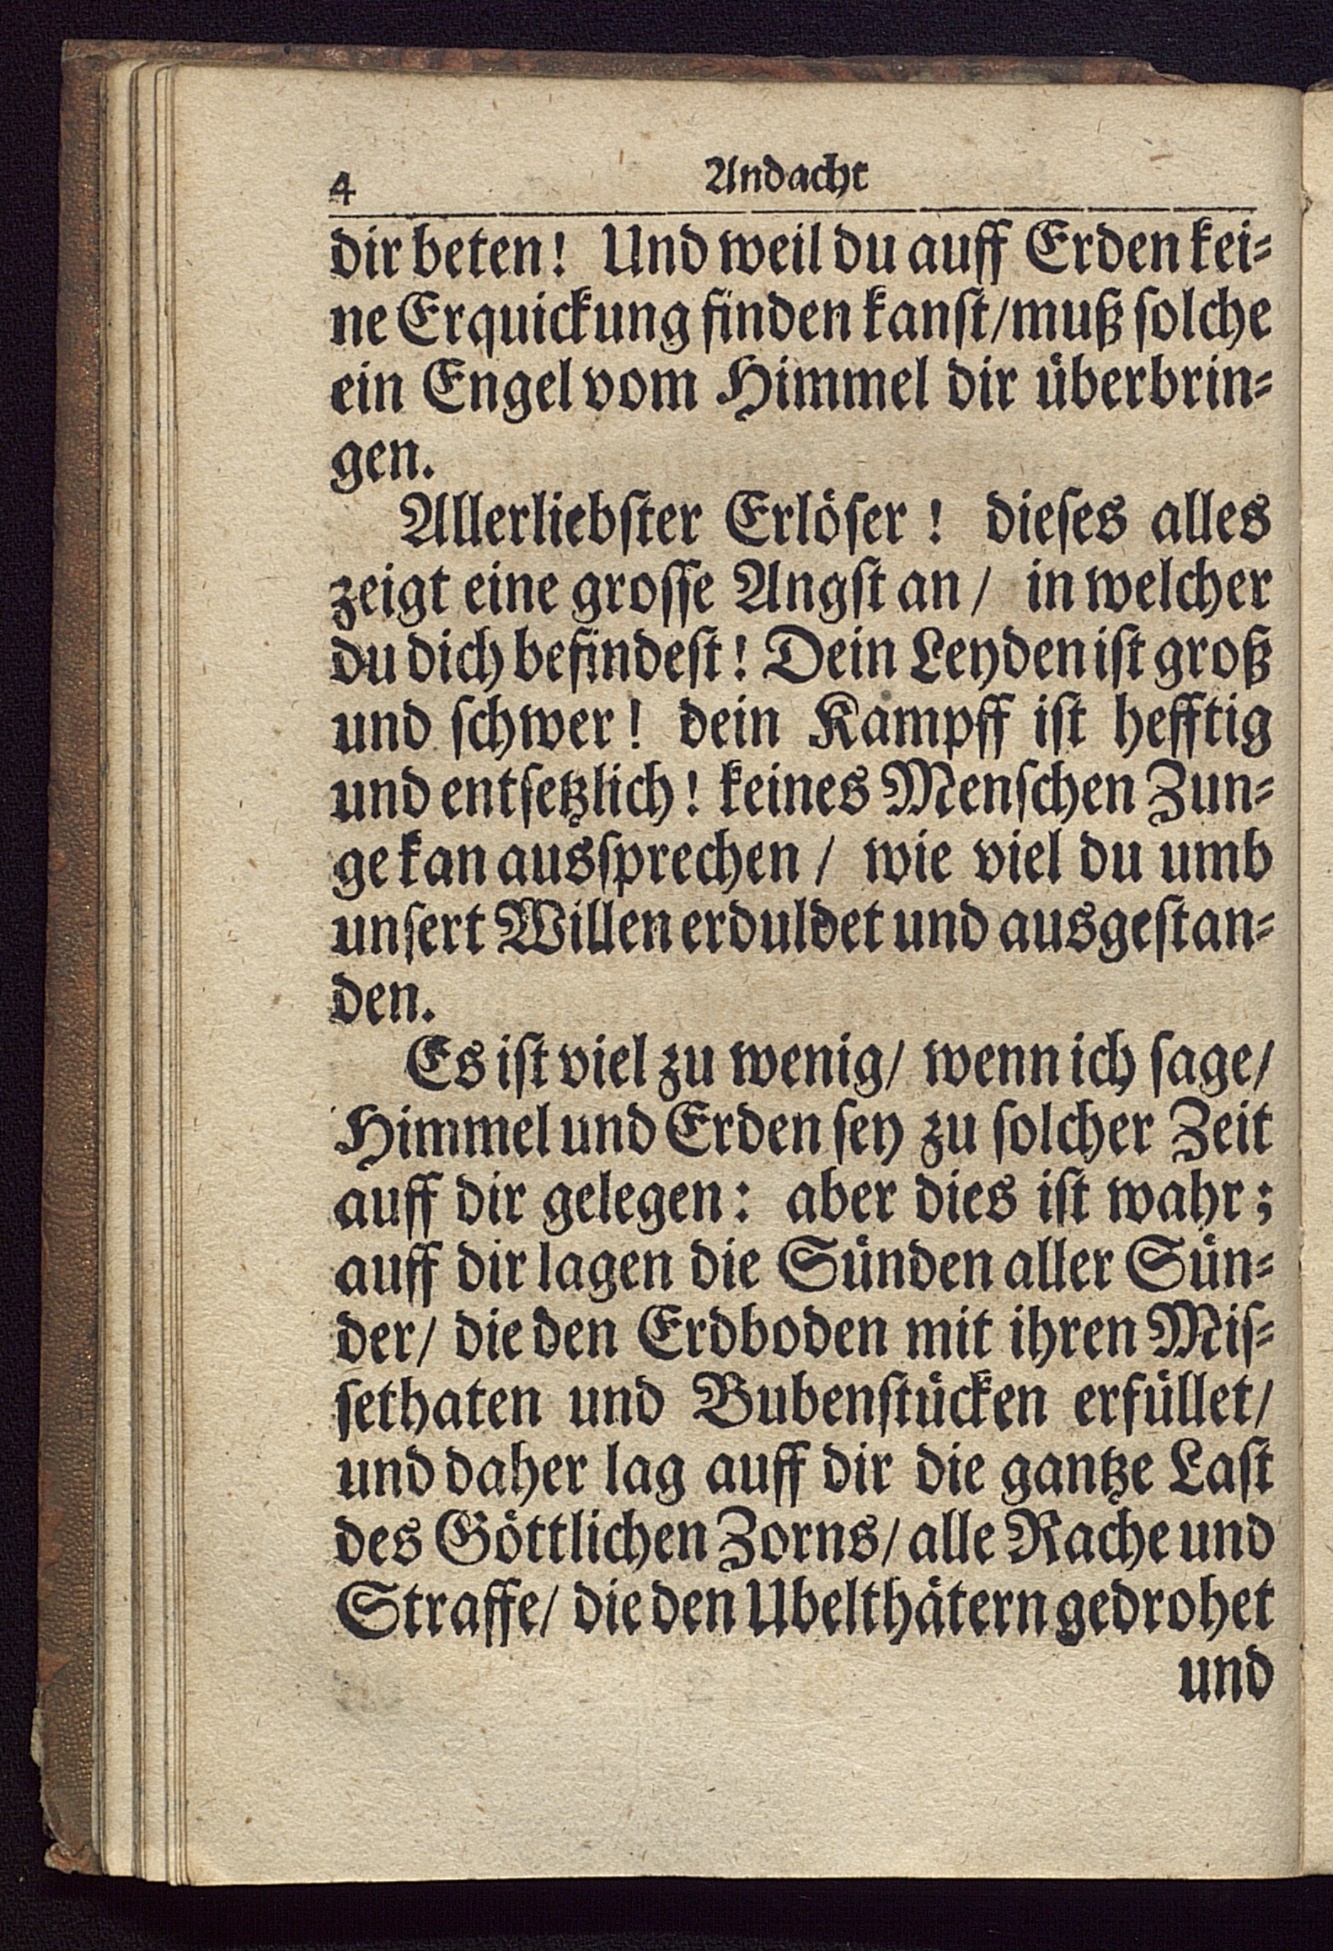 4 Andacht
dir beten! Und weil du auff Erden kei⸗
ne Erquickung finden kanſt/muß ſolche
ein Engel vom Himmel dir uͤberbrin⸗
gen.
Allerliebſter Erloͤſer! dieſes alles
zeigt eine groſſe Angſt an/ in welcher
du dich befindeſt! Dein Leyden iſt groß
und ſchwer! dein Kampff iſt hefftig
und entſetzlich! keines Menſchen Zun⸗
ge kan ausſprechen / wie viel du umb
unſert Willen erduldet und ausgeſtan⸗
den.
Es iſt viel zu wenig/ wenn ich ſage/
Himmel und Erden ſey zu ſolcher Zeit
auff dir gelegen: aber dies iſt wahr;
auff dir lagen die Suͤnden aller Suͤn⸗
der/ die den Erdboden mit ihren Miſ⸗
ſethaten und Bubenſtuͤcken erfuͤllet/
und daher lag auff dir die gantze Laſt
des Goͤttlichen Zorns/ alle Rache und
Straffe/ die den Ubelthaͤtern gedrohet
und